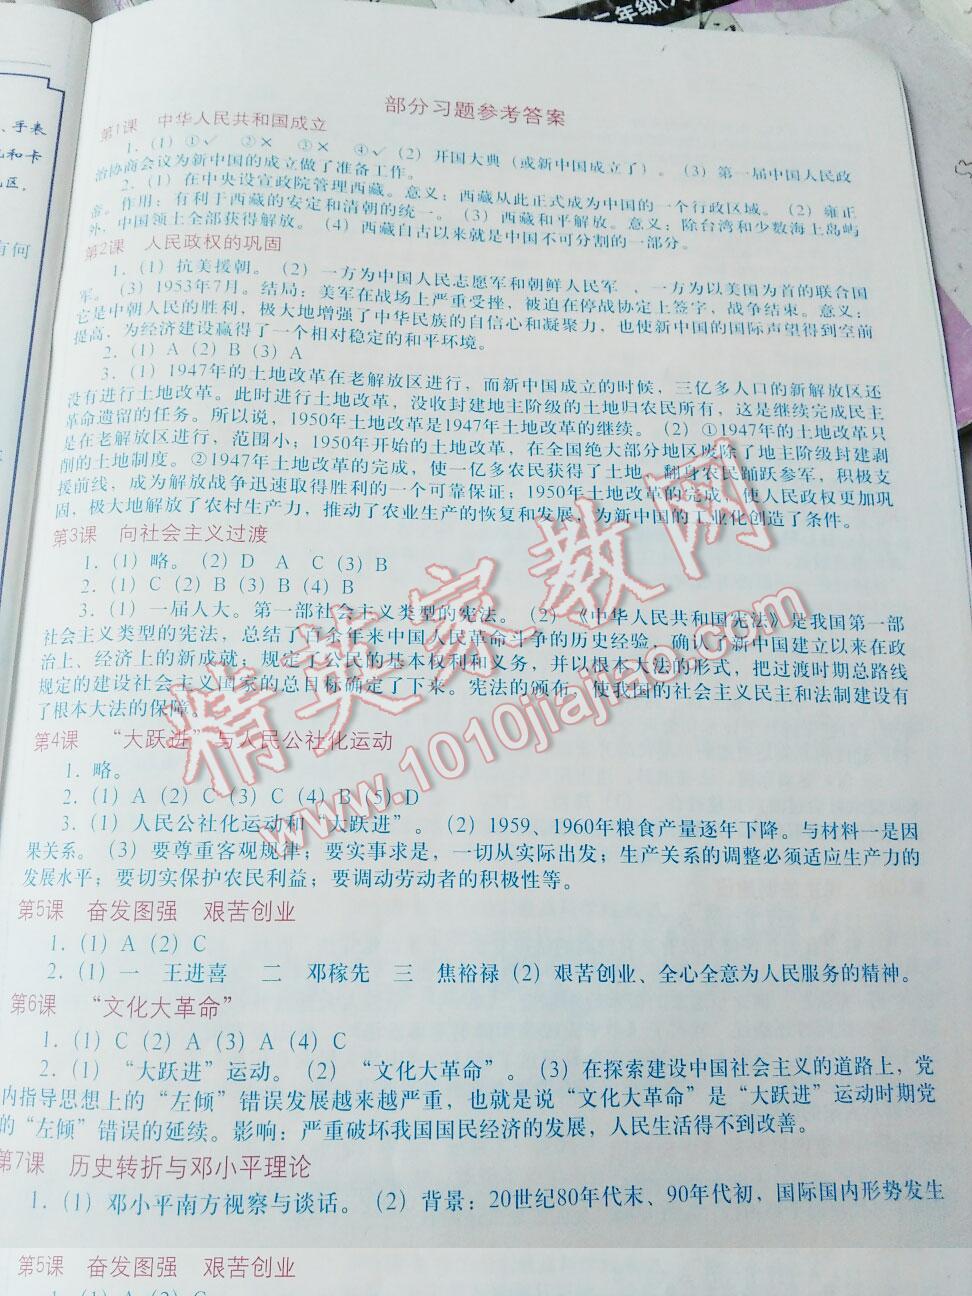 二年级
、手表
和卡
区，
有何
部分习题参考答案
第1课　中华人民共和国成立
1.（1）①√　②×　③×　④√（2）开国大典（或新中国成立了）。（3）第一届中国人民政
治协商会议为新中国的成立做了准备工作。
2.（1）在中央设宣政院管理西藏。意义：西藏从此正式成为中国的一个行政区域。（2）雍正
帝。作用：有利于西藏的安定和清朝的统一。（3）西藏和平解放。意义：除台湾和少数海上岛屿
外，中国领土全部获得解放。（4）西藏自古以来就是中国不可分割的一部分。
第2课　人民政权的巩固
1.（1）抗美援朝。（2）一方为中国人民志愿军和朝鲜人民军　、一方为以美国为首的联合国
军。（3）1953年7月。结局：美军在战场上严重受挫，被迫在停战协定上签字，战争结束。意义：
它是中朝人民的胜利，极大地增强了中华民族的自信心和凝聚力，也使新中国的国际声望得到空前
提高，为经济建设赢得了一个相对稳定的和平环境。
2.（1）A（2）B（3）A
3.（1）1947年的土地改革在老解放区进行，而新中国成立的时候，三亿多人口的新解放区还
没有进行土地改革。此时进行土地改革，没收封建地主阶级的土地归农民所有，这是继续完成民主
革命遗留的任务。所以说，1950年土地改革是1947年土地改革的继续。（2）①1947年的土地改革只
是在老解放区进行，范围小；1950年开始的土地改革，在全国绝大部分地区废除了地主阶级封建剥
削的土地制度。②1947年土地改革的完成，使一亿多农民获得了土地，翻身农民踊跃参军，积极支
援前线，成为解放战争迅速取得胜利的一个可靠保证；1950年土地改革的完成，使人民政权更加巩
固，极大地解放了农村生产力，推动了农业生产的恢复和发展，为新中国的工业化创造了条件。
第3课　向社会主义过渡
1.（1）略。（2）D　A　C（3）B
2.（1）C（2）B（3）B（4）B
3.（1）一届人大。第一部社会主义类型的宪法。（2）《中华人民共和国宪法》是我国第一部
社会主义类型的宪法，总结了百余年来中国人民革命斗争的历史经验，确认了新中国建立以来在政
治上、经济上的新成就；规定了公民的基本权利和义务，并以根本大法的形式，把过渡时期总路线
规定的建设社会主义国家的总目标确定了下来。宪法的颁布，使我国的社会主义民主和法制建设有
了根本大法的保障。
第4课　“大跃进”与人民公社化运动
1. 略。
2.（1）A（2）C（3）C（4）B（5）D
3.（1）人民公社化运动和“大跃进”。（2）1959、1960年粮食产量逐年下降。与材料一是因
果关系。（3）要尊重客观规律；要实事求是，一切从实际出发；生产关系的调整必须适应生产力的
发展水平；要切实保护农民利益；要调动劳动者的积极性等。
第5课　奋发图强　艰苦创业
1.（1）A（2）C
2.（1）一　王进喜　二　邓稼先　三　焦裕禄（2）艰苦创业、全心全意为人民服务的精神。
第6课　“文化大革命”
1.（1）C（2）A（3）A（4）C
2.（1）“大跃进”运动。（2）“文化大革命”。（3）在探索建设中国社会主义的道路上，党
内指导思想上的“左倾”错误发展越来越严重，也就是说“文化大革命”是“大跃进”运动时期党
的“左倾”错误的延续。影响：严重破坏我国国民经济的发展，人民生活得不到改善。
第7课　历史转折与邓小平理论
1.（1）邓小平南方视察与谈话。（2）背景：20世纪80年代末、90年代初，国际国内形势发生
第5课　奋发图强　艰苦创业
1.（1）A（2）C
精英家教网
www.1010jiajiao.com